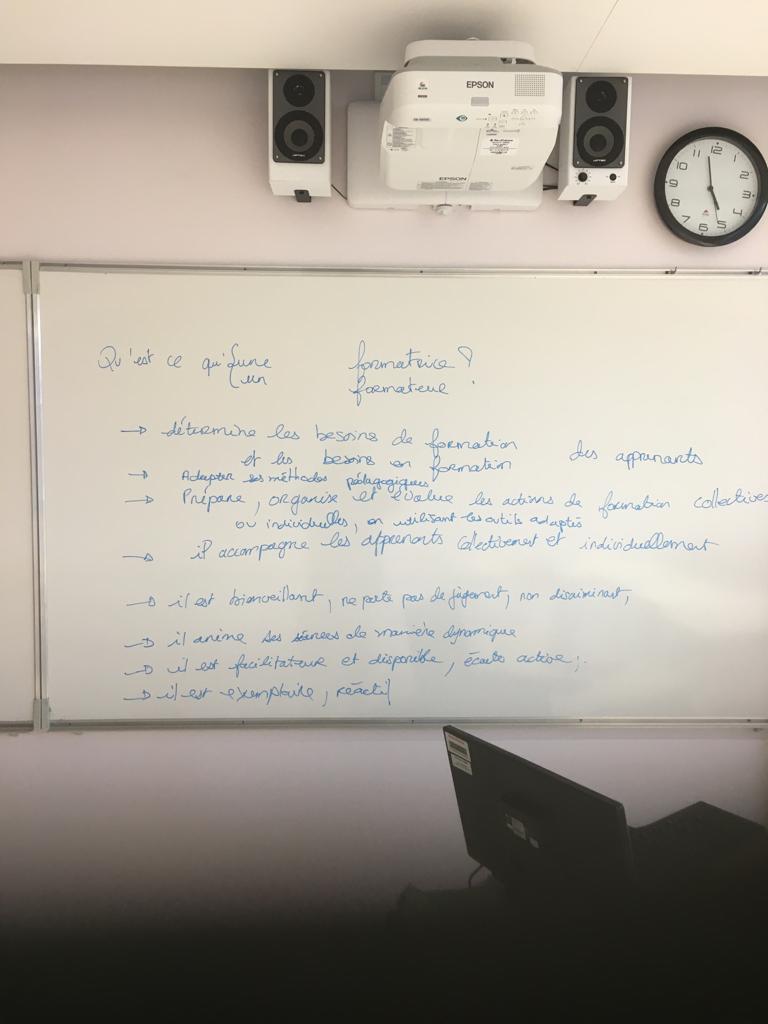 EPSON
EPSON
11 12 1
10 2
9 3
8 4
7 6 5
Qu'est ce qu'{une formatrice ?
un formateur
→ détermine les besoins de formation des apprenants
et les besoins en formation
→ Adapter ses méthodes pédagogiques
→ Prépare, organise et évalue les actions de formation collectives
ou individuelles, en utilisant les outils adaptés
→ il accompagne les apprenants collectivement et individuellement
→ il est bienveillant, ne porte pas de jugement, non discriminant,
→ il anime ses séances de manière dynamique
→ il est facilitateur et disponible, écoute active ;.
→ il est exemplaire, réactif